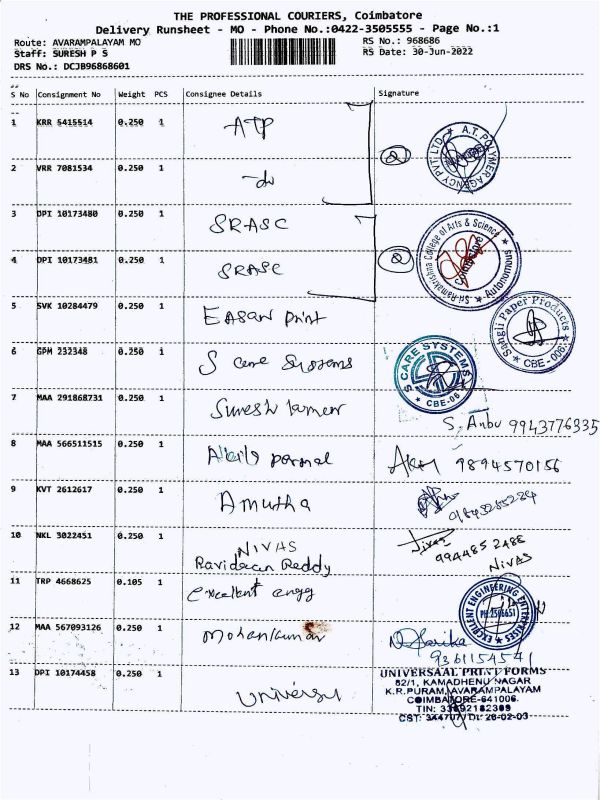 THE PROFESSIONAL COURIERS, Coimbatore
Delivery Runsheet - MO - Phone No.:0422-3505555 - Page No.:1
Route: AVARAMPALAYAM MO
Staff: SURESH P S
DRS No.: DCJB96868601
RS No.: 968686
RS Date: 30-Jun-2022
S No Consignment No Weight PCS Consignee Details Signature
1 KRR 5415514 0.250 1 ATP
A.T. POLYMER AGENCY PVT. LTD.
2 VRR 7081534 0.250 1
3 DPI 10173480 0.250 1 SRASC
4 DPI 10173481 0.250 1 SRASC
Sri Ramakrishna College of Arts & Science Autonomous Coimbatore
5 SVK 10284479 0.250 1 EASAN Print
Sangli Paper Products CBE-006
6 GPM 232348 0.250 1 S care Systems
S CARE SYSTEMS CBE-06
7 MAA 291868731 0.250 1 Suresh kumar
S. Anbu 9943776335
8 MAA 566511515 0.250 1
9894570156
9 KVT 2612617 0.250 1 Amutha
10 NKL 3022451 0.250 1 NIVAS
Reddy
9944852488
NIVAS
11 TRP 4668625 0.105 1 excellent engg
EXCELLENT ENGINEERING ENTERPRISES PH:2568651
12 MAA 567093126 0.250 1 Mohankumar
9361154541
13 DPI 10174458 0.250 1
UNIVERSAAL PRINT FORMS
82/1, KAMADHENU NAGAR
K.R.PURAM, AVARAMPALAYAM
COIMBATORE-641006.
TIN: 33692182309